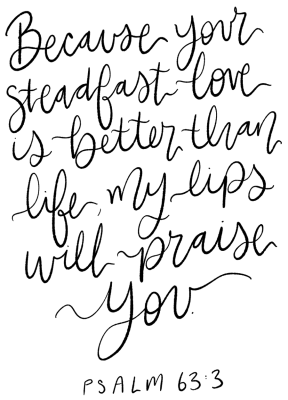 Because your
steadfast love
is better than
life, my lips
will praise
you.
PSALM 63:3